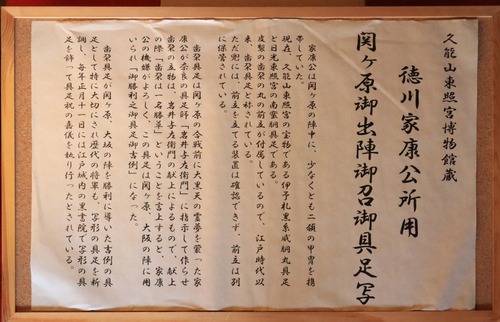 久能山東照宮博物館蔵
徳川家康公所用
関ヶ原御出陣御召御具足写
家康公は関ヶ原の陣中に、少なくとも二領の甲冑を携
帯していた。
現在、久能山東照宮の宝物である伊予札黒糸威胴丸具足
と日光東照宮の南蛮胴具足である。
皮製の歯朶の丸の前立が付属しているので、江戸時代以
来、歯朶具足と称されている。
ただ兜には、前立を立てる装置は確認できず、前立は別
に保管されている。
歯朶具足は関ヶ原の合戦前に大黒天の霊夢を蒙った家
康公が奈良の具足師「岩井与左衛門」に指示して作らせ
た。歯朶の立物は、岩井与左衛門の献上によるもので、献上
の際「歯朶は一名勝草」ということを言上すると、家康
公の機嫌がよろしく、この具足は関ヶ原、大阪の陣に用
いられ「御勝利之御具足御吉例」になった。
歯朶具足が関ヶ原、大坂の陣を勝利に導いた吉例の具
足として特に大切にされ歴代の将軍も、写形の具足を新
調し、毎年正月十一日には江戸城内の黒書院で写形の具
足を飾って具足祝の嘉儀を執り行ったとされている。